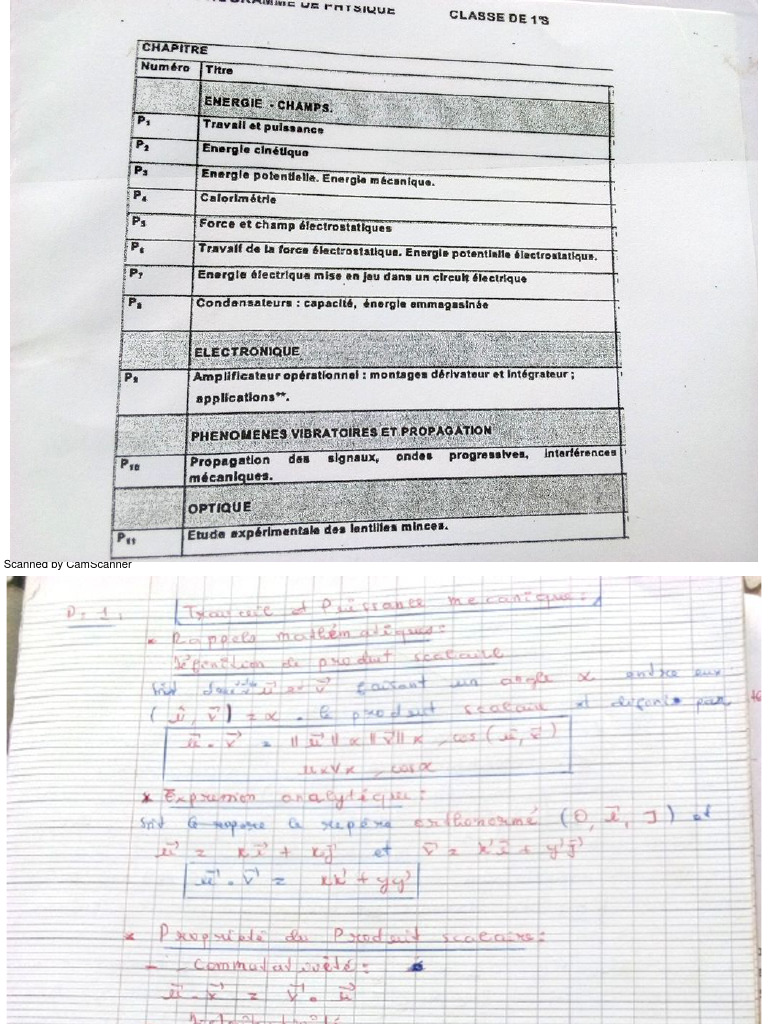 PROGRAMME DE PHYSIQUE CLASSE DE 1°S
CHAPITRE
Numéro Titre
ENERGIE - CHAMPS.
P₁ Travail et puissance
P₂ Energie cinétique
P₃ Energie potentielle. Energie mécanique.
P₄ Calorimétrie
P₅ Force et champ électrostatiques
P₆ Travail de la force électrostatique. Energie potentielle électrostatique.
P₇ Energie électrique mise en jeu dans un circuit électrique
P₈ Condensateurs : capacité, énergie emmagasinée
ELECTRONIQUE
P₉ Amplificateur opérationnel : montages dérivateur et intégrateur ;
applications**.
PHENOMENES VIBRATOIRES ET PROPAGATION
P₁₀ Propagation des signaux, ondes progressives, interférences
mécaniques.
OPTIQUE
P₁₁ Etude expérimentale des lentilles minces.
Scanned by CamScanner
P: 1: Travail et Puissance mecanique:
* Rappels mathématiques:
Définition de produit scalaire
Soit deux u⃗ et v⃗ faisant un angle α entre eux
(u⃗, v⃗) = α. le produit scalaire est défini par
u⃗ . v⃗ = ||u⃗|| x ||v⃗|| x cos(u⃗, v⃗)
u x v x cosα
* Expression analytique:
Soit le repère orthonormé (O, i⃗, J) et
u⃗ = xi⃗ + yj⃗ et v⃗ = x'i⃗ + y'j⃗
u⃗ . v⃗ = xx' + yy'
* Propriété du Produit scalaire:
- Commutativité:
u⃗ . v⃗ = v⃗ . u⃗